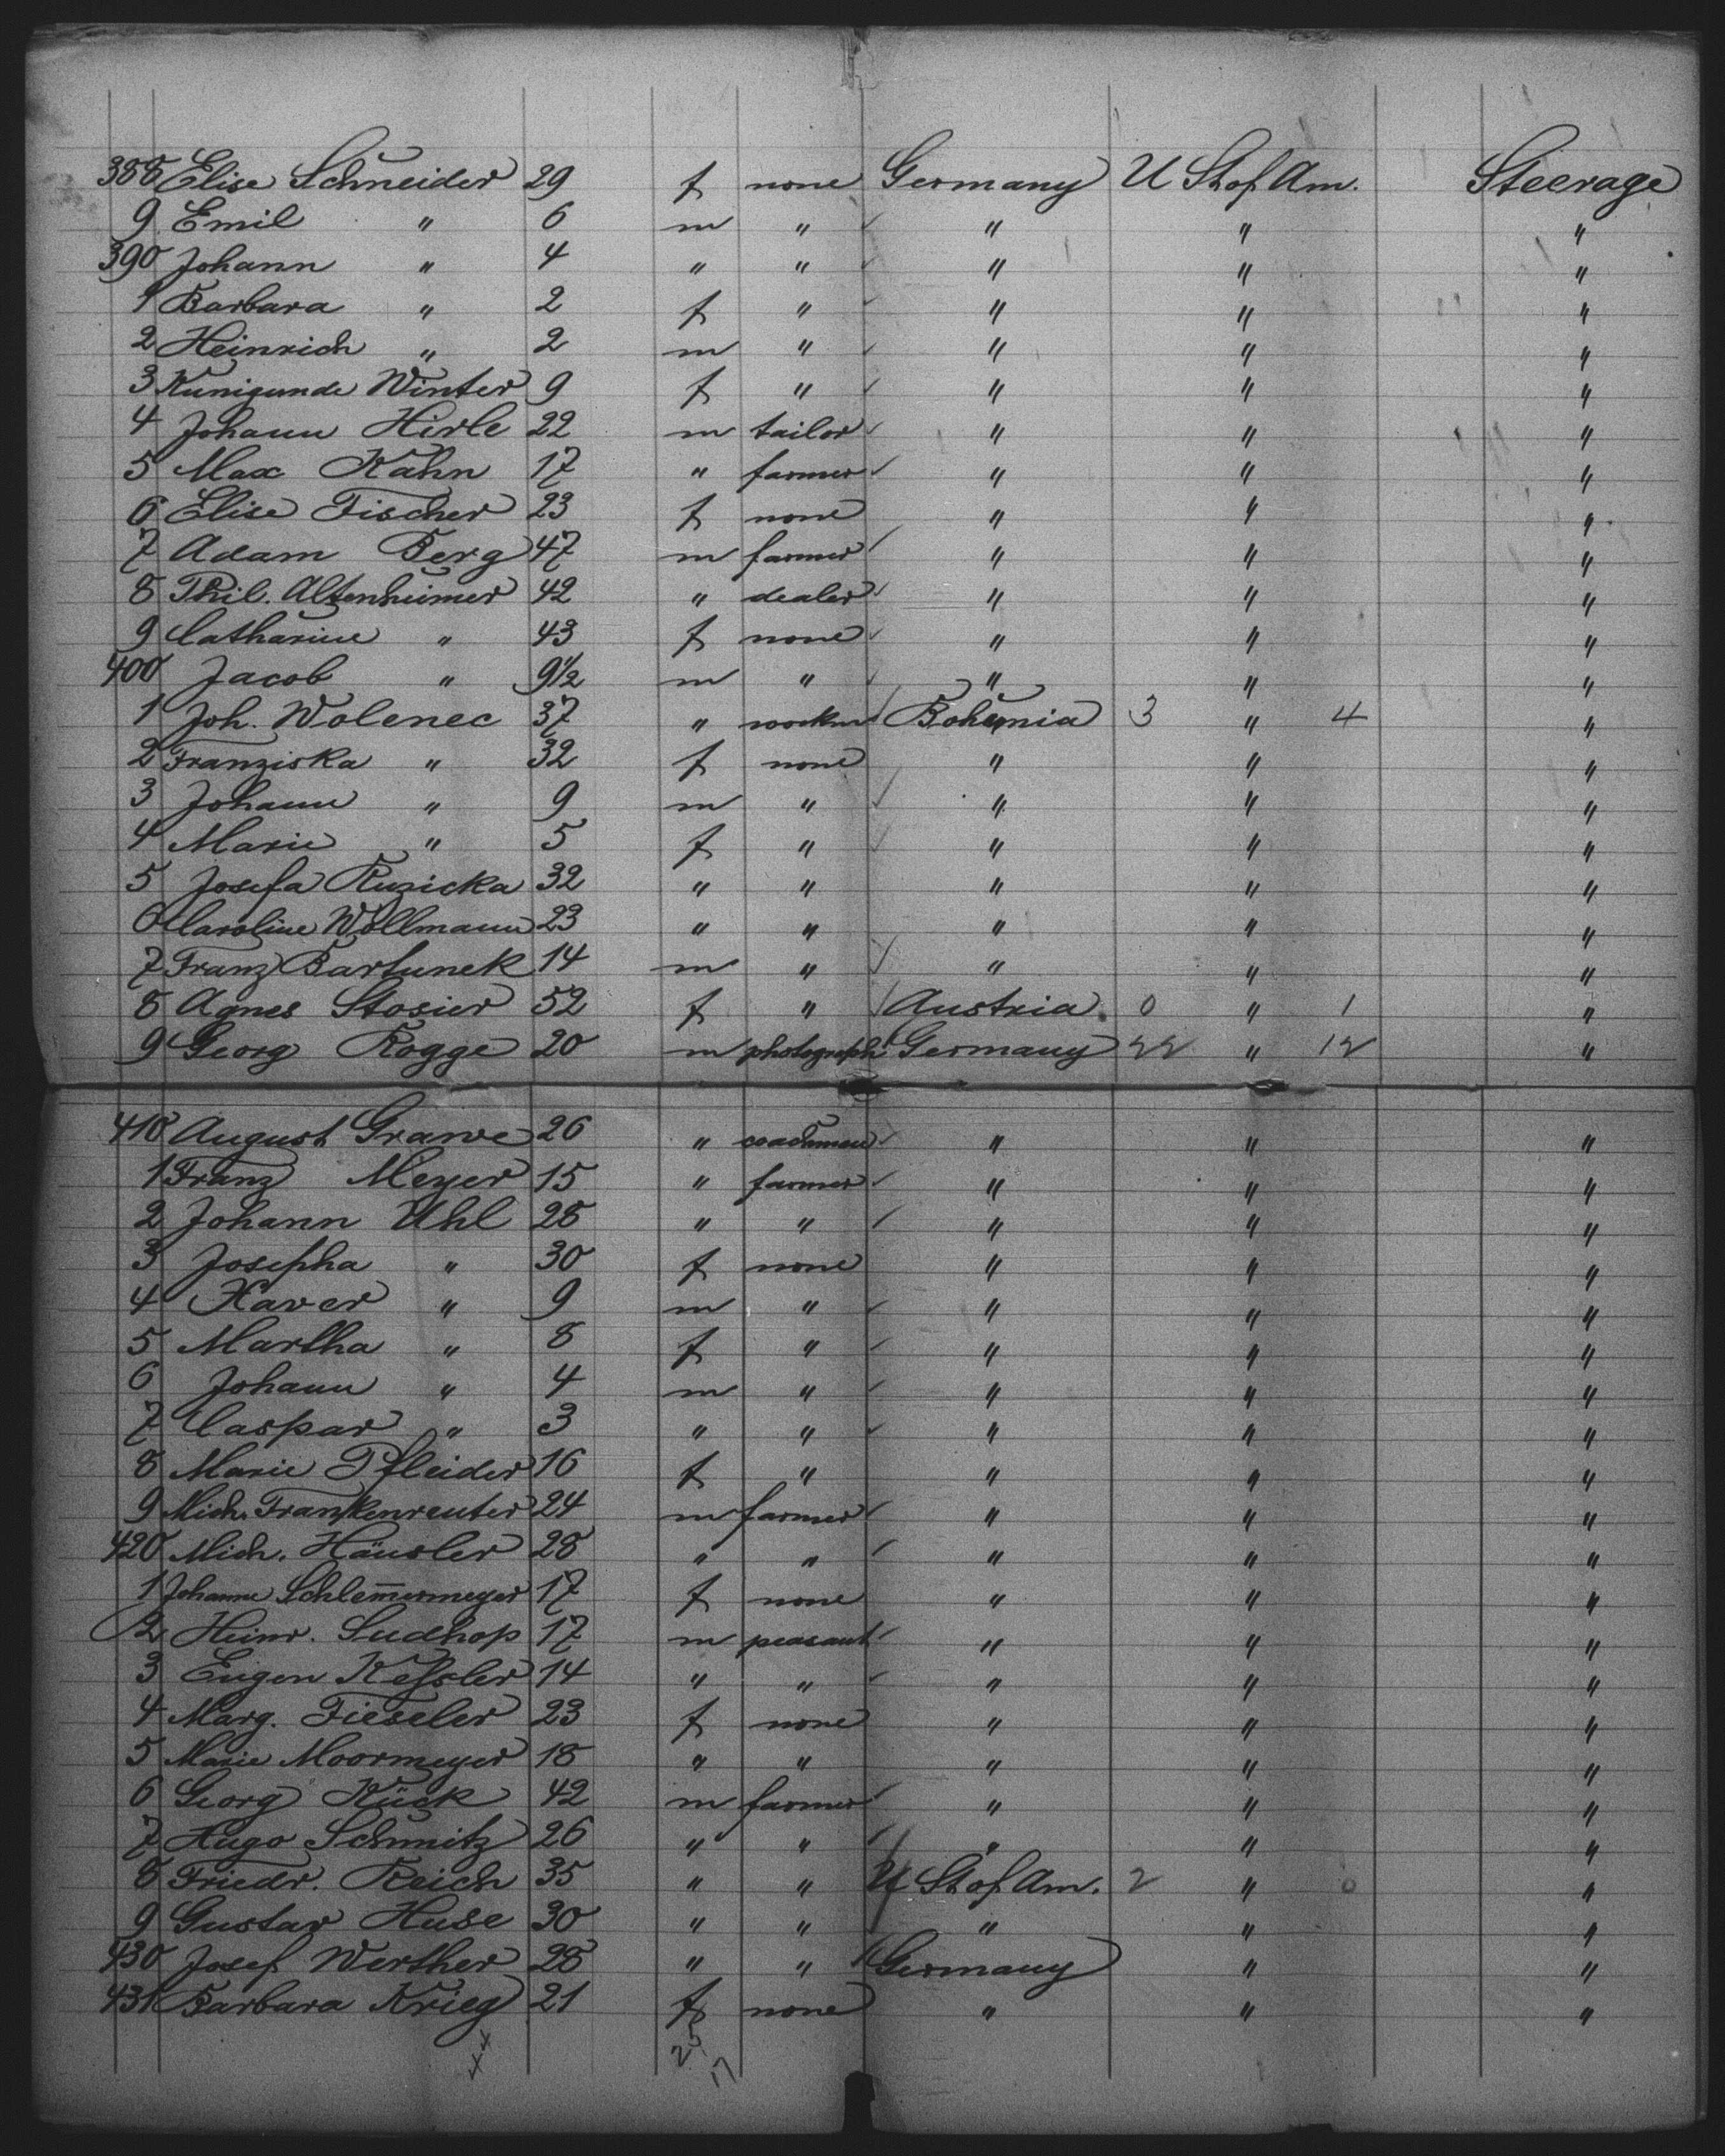 388 Elise Schneider 29 f none Germany U St of Am. Steerage
9 Emil " 6 m " " " "
390 Johann " 4 " " " " "
1 Barbara " 2 f " " " "
2 Heinrich " 2 m " " " "
3 Kunigunde Winter 9 f " " " "
4 Johann Hirle 22 m tailor " " "
5 Max Kahn 17 " farmer " " "
6 Elise Fischer 23 f none " " "
7 Adam Berg 47 m farmer " " "
8 Phil. Altenheimer 42 " dealer " " "
9 Catharine " 43 f none " " "
400 Jacob " 9½ m " " " "
1 Joh. Wolenec 37 " Bohemia 3 " 4 "
2 Franziska " 32 f none " " "
3 Johann " 9 m " " " "
4 Marie " 5 f " " " "
5 Josefa Ruzicka 32 " " " " "
6 Caroline Wollmann 23 " " " " "
7 Franz Bartunek 14 m " " " "
8 Agnes Stosier 52 f " Austria 0 " 1 "
9 Georg Rogge 20 m photograph Germany 22 " 12 "
410 August Grawe 26 " coachman " " "
1 Franz Meyer 15 " farmer " " "
2 Johann Uhl 28 " " " " "
3 Josepha " 30 f none " " "
4 Xaver " 9 m " " " "
5 Martha " 8 f " " " "
6 Johann " 4 m " " " "
7 Caspar " 3 " " " " "
8 Marie Pfleider 16 f " " " "
9 Mich. Frankenreuter 24 m farmer " " "
420 Mich. Häusler 28 " " " " "
1 Johanne Schlem̅ermeyer 17 f none " " "
2 Heinr. Sudhop 17 m peasant " " "
3 Eugen Keßler 14 " " " " "
4 Marg. Fieseler 23 f none " " "
5 Marie Moormeyer 18 " " " " "
6 Georg Kück 42 m farmer " " "
7 Hugo Schmitz 26 " " " " "
8 Friedr. Reich 35 " " U St of Am. 2 " 0 "
9 Gustav Huse 30 " " " " "
430 Josef Werther 28 " " Germany " "
431 Barbara Krieg 21 f none " " "
25
17